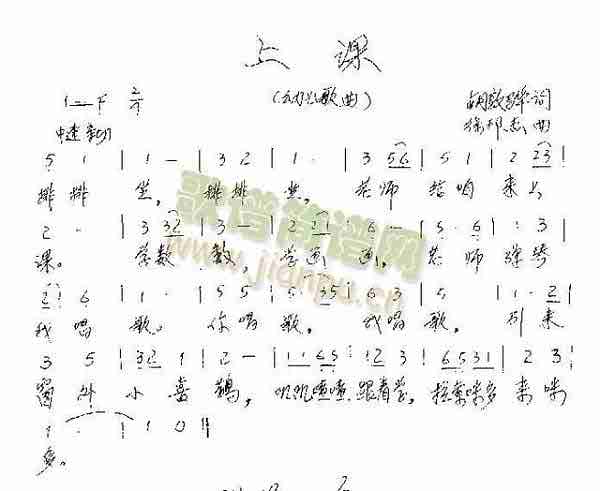 上 课
(幼儿歌曲)
1=F 2/4
词
中速
曲
5 1 | 1 - | 3 2 | 1 - | 3 56 | 5 1 | 2 23 |
排排 坐, 排排 坐, 老师 给咱 来上
2 - | 3 32 | 3 - | 2 21 | 6 - | 5 · 6 | 1 3 |
课。 学数 数, 学画 画, 老 师 弹琴
歌谱简谱网
www.jianpu.cn
2 6 | 1 - | 5 5 | 5 · 35 | 6 3 | 5 | 1 · 2 |
我唱 歌。 你唱 歌, 我唱 歌, 引来
3 5 | 32 1 | 2 - | 11 65 | 12 3 | 6531 | 2 3 |
窗外 小喜鹊, 叽叽喳喳 跟着学, 来咪
1 - | 1 0 ||
多。